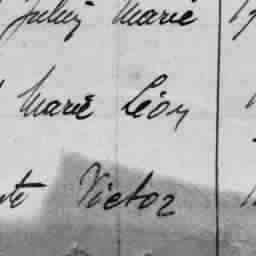 Julien Marie
Marie Léon
te Victor